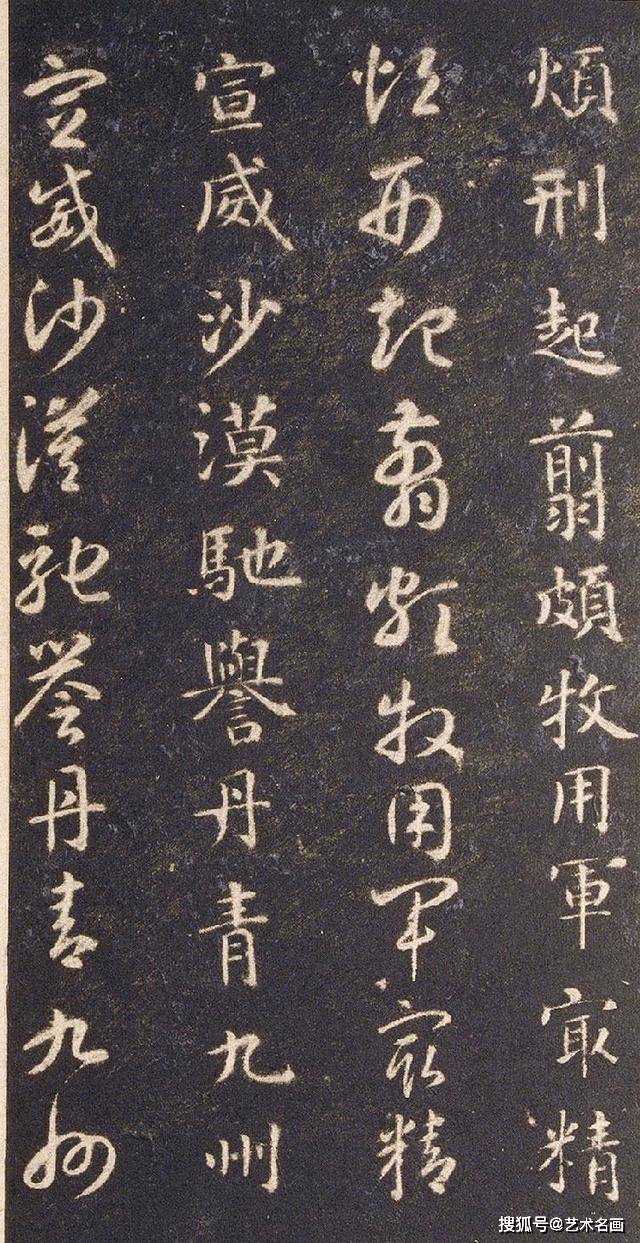 煩刑起翦頗牧用軍㝡精
煩刑起翦頗牧用軍㝡精
宣威沙漠馳譽丹青九州
宣威沙漠馳譽丹青九州
搜狐号@艺术名画